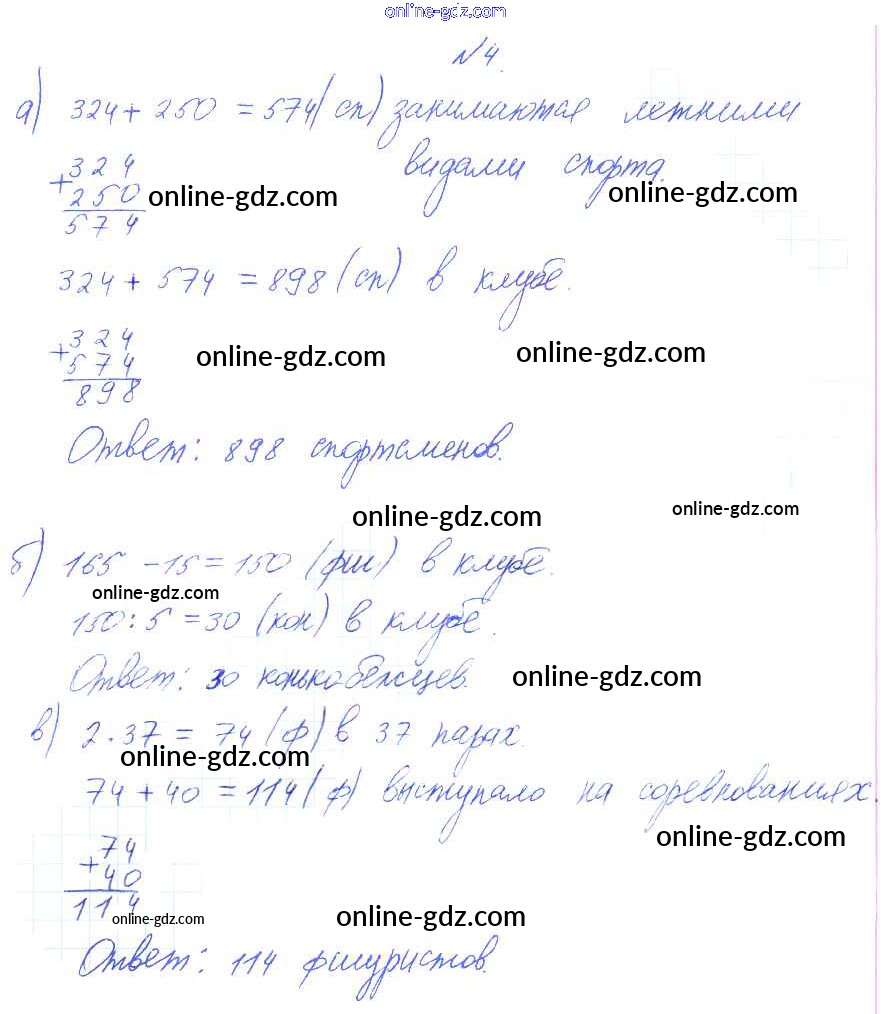 online-gdz.com
№4.
а) 324 + 250 = 574 (сп) занимаются летними
видами спорта.
+324
250 online-gdz.com online-gdz.com
574
324 + 574 = 898 (сп) в клубе.
+324
574 online-gdz.com online-gdz.com
898
Ответ: 898 спортсменов.
online-gdz.com online-gdz.com
б) 165 - 15 = 150 (фиг) в клубе.
online-gdz.com
150 : 5 = 30 (кон) в клубе.
Ответ: 30 конькобежцев. online-gdz.com
в) 2 · 37 = 74 (ф) в 37 парах.
online-gdz.com
74 + 40 = 114 (ф) выступало на соревнованиях.
online-gdz.com
+74
40
114 online-gdz.com online-gdz.com
Ответ: 114 фигуристов.